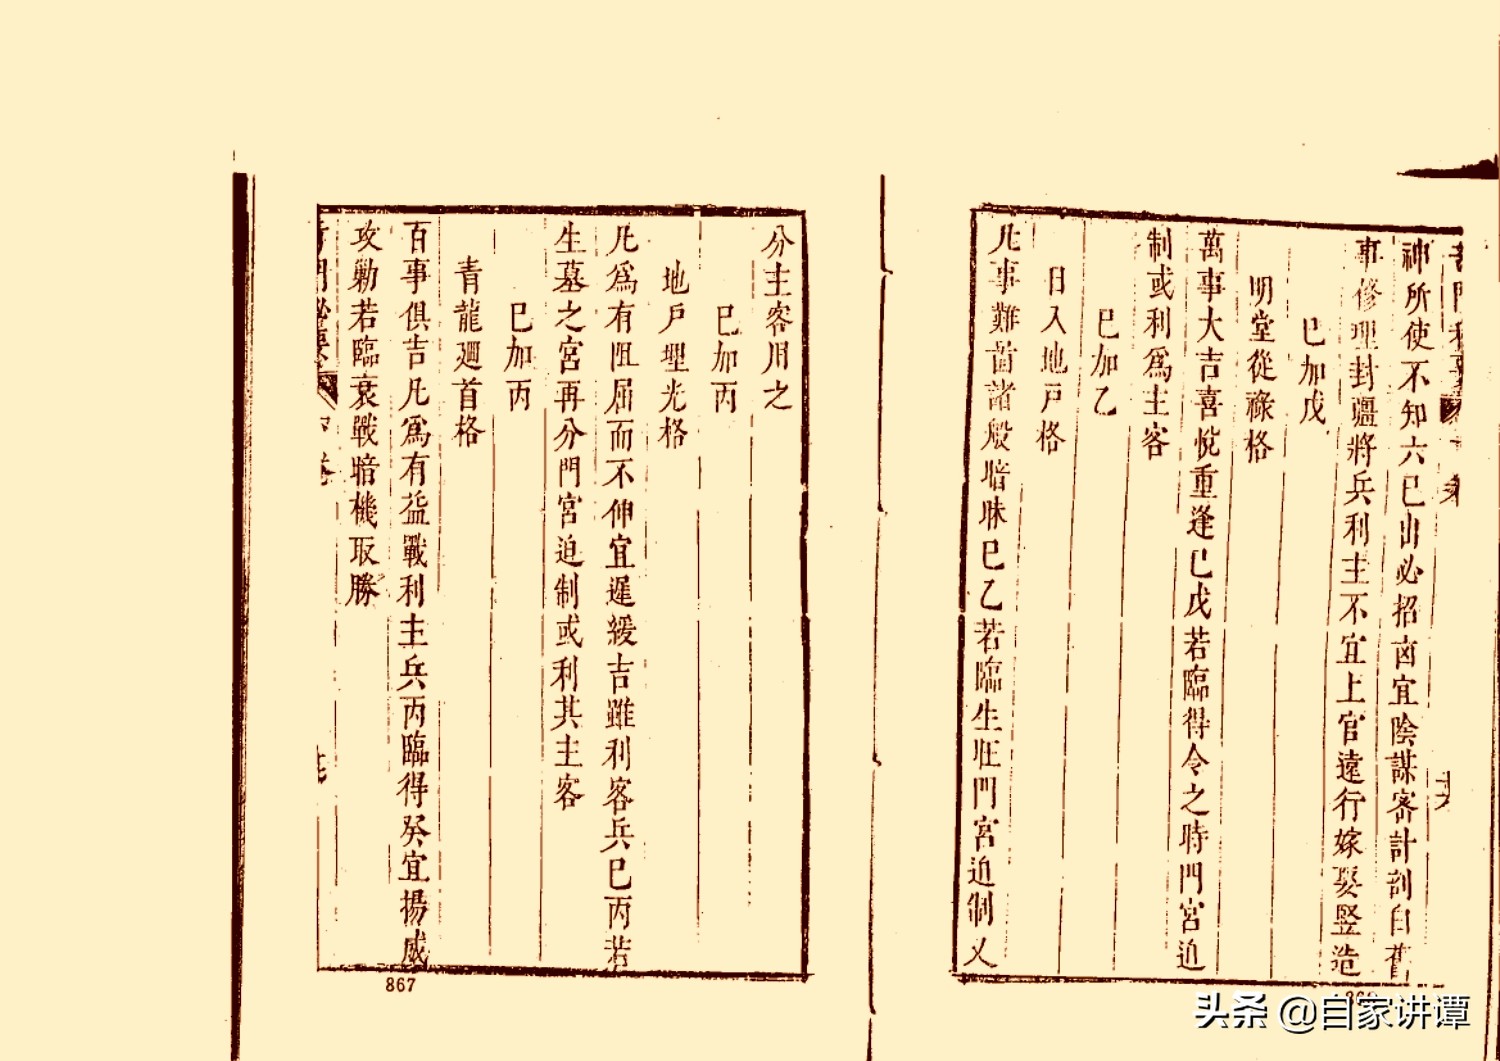 神所使不知六己出必招凶宜陰謀密計剖白舊
事修理封疆將兵利主不宜上官遠行嫁娶竪造
己加戊
明堂從祿格
萬事大吉喜悅重逢己戊若臨得令之時門宮迫
制或利爲主客
己加乙
日入地戸格
凡事難啚諸般暗昧己乙若臨生旺門宮迫制又
分主客用之
己加丙
地戸埋光格
凡爲有阻屈而不伸宜遲緩吉雖利客兵己丙若
生墓之宮再分門宮迫制或利其主客
己加丙
青龍廻首格
百事俱吉凡爲有益戰利主兵丙臨得癸宜揚威
攻勦若臨衰戰暗機取勝
867
头条 @自家讲谭